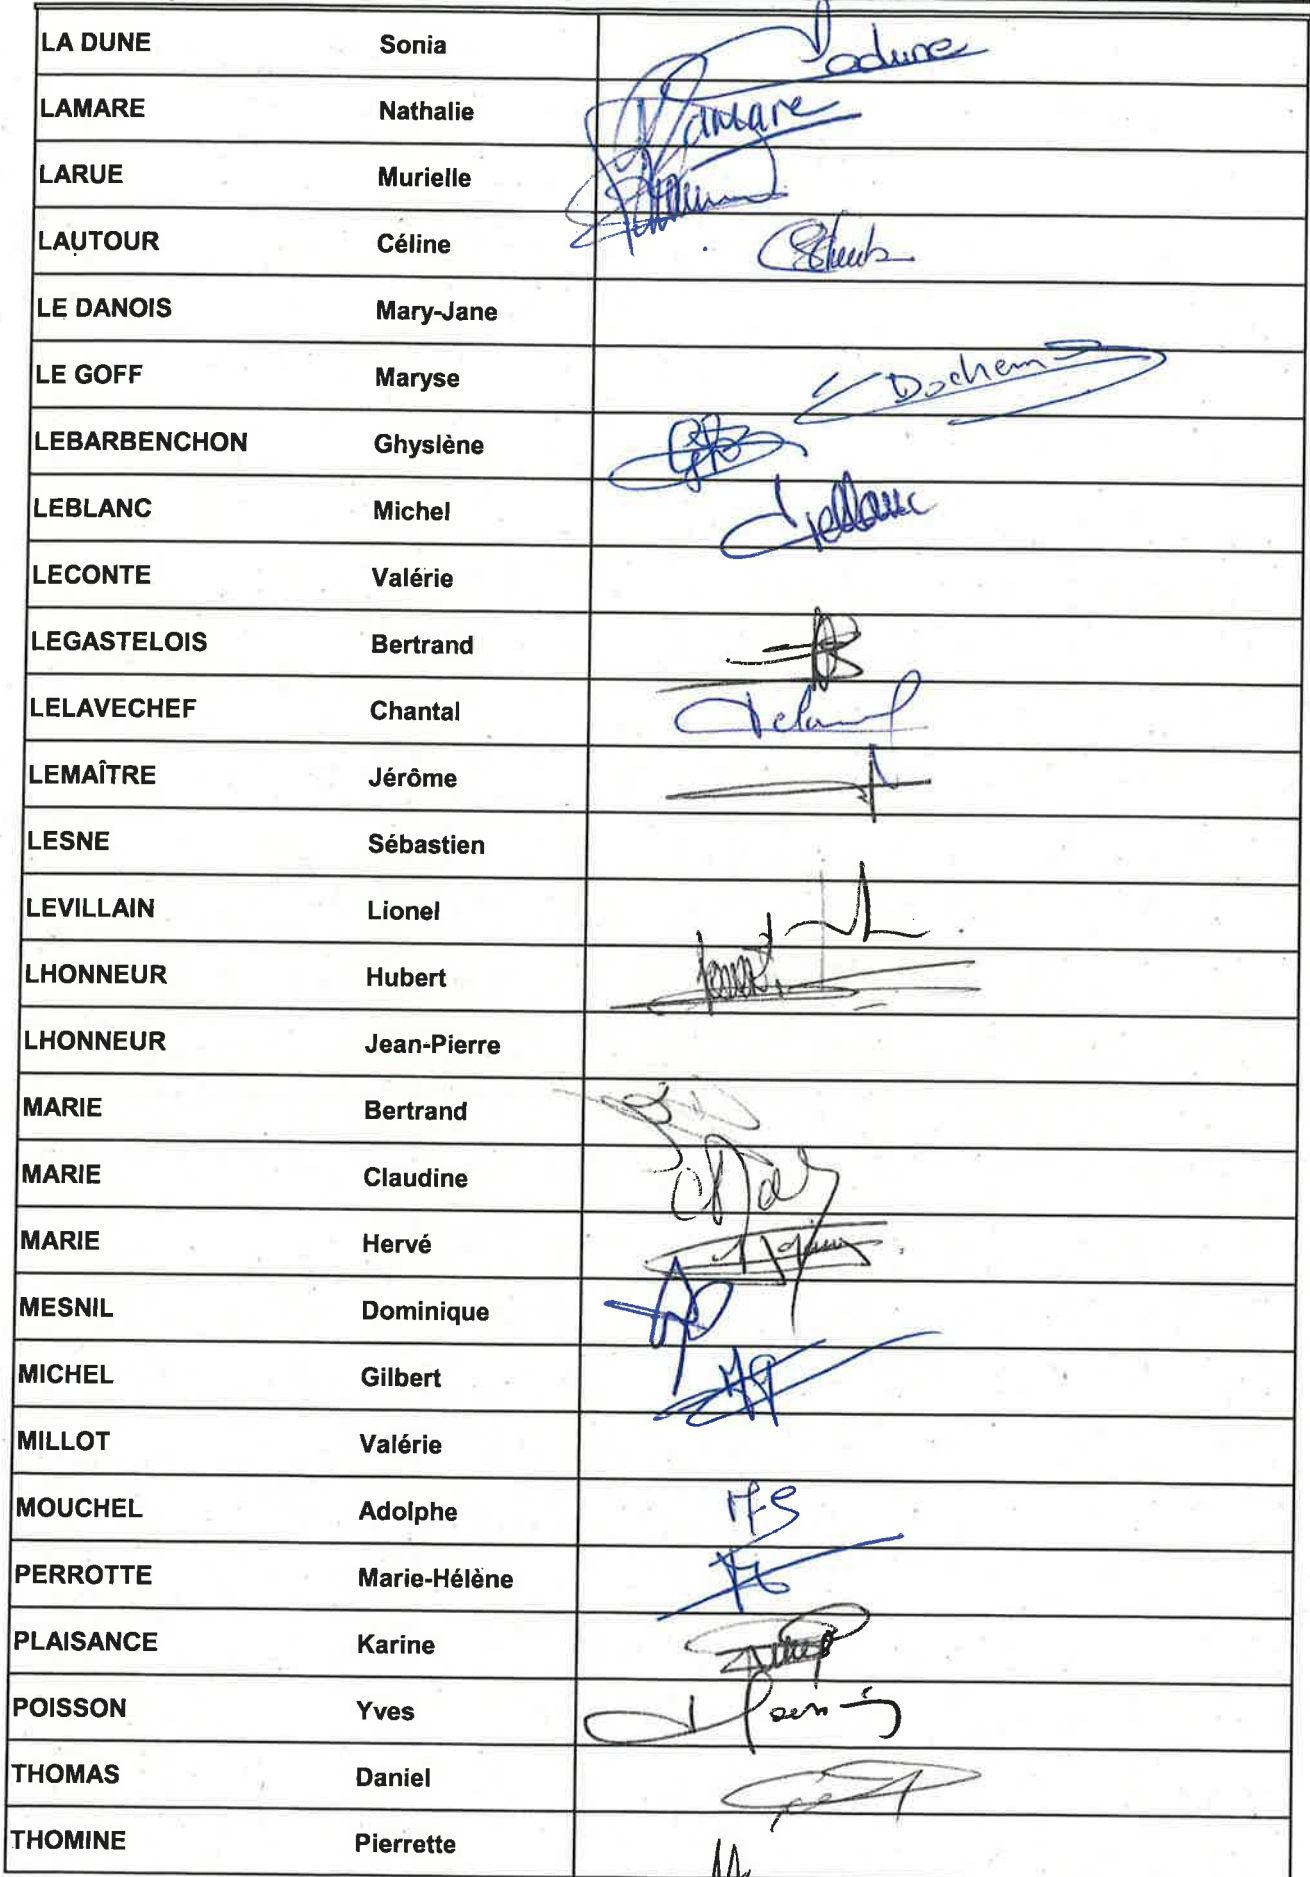 LA DUNE Sonia Ladune
LAMARE Nathalie Lamare
LARUE Murielle
LAUTOUR Céline
LE DANOIS Mary-Jane
LE GOFF Maryse
LEBARBENCHON Ghyslène
LEBLANC Michel Leblanc
LECONTE Valérie
LEGASTELOIS Bertrand
LELAVECHEF Chantal
LEMAÎTRE Jérôme
LESNE Sébastien
LEVILLAIN Lionel
LHONNEUR Hubert
LHONNEUR Jean-Pierre
MARIE Bertrand
MARIE Claudine
MARIE Hervé
MESNIL Dominique
MICHEL Gilbert
MILLOT Valérie
MOUCHEL Adolphe
PERROTTE Marie-Hélène
PLAISANCE Karine
POISSON Yves
THOMAS Daniel
THOMINE Pierrette